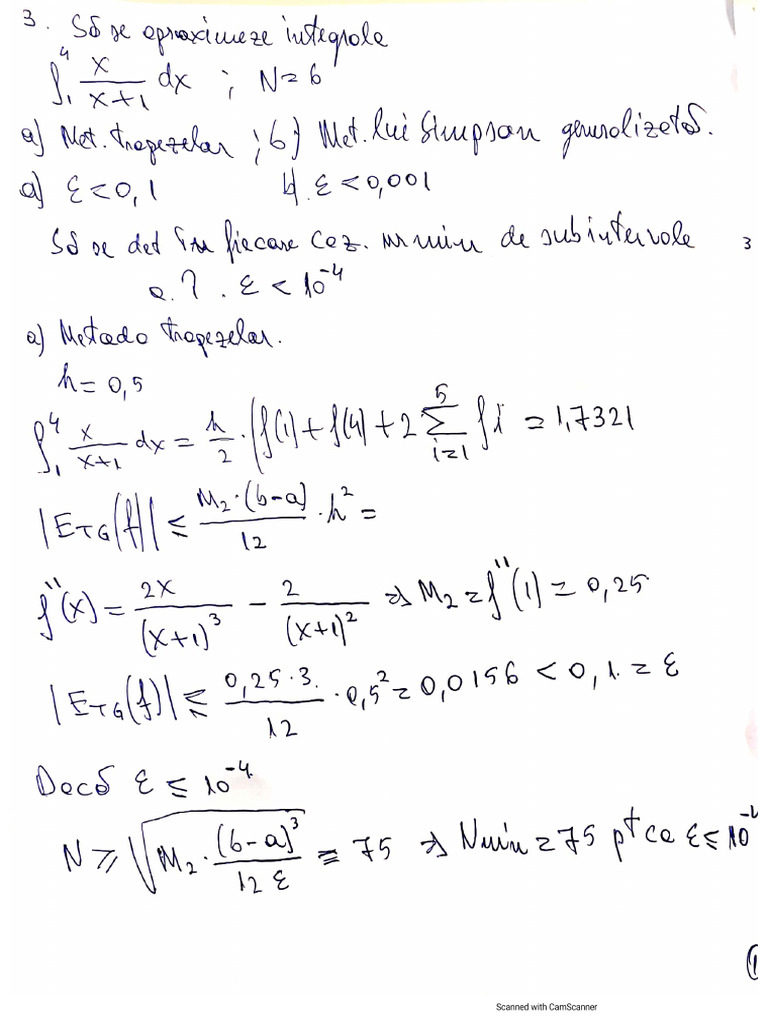 3. Să se aproximeze integrala
∫₁⁴ x/(x+1) dx ; N=6
a) Met. trapezelor ; b) Met. lui Simpson generalizată.
a) ε<0,1 b). ε<0,001
Să se det în fiecare caz. nr min de subintervale 3
a.î. ε < 10⁻⁴
a) Metoda trapezelor.
h=0,5
∫₁⁴ x/(x+1) dx = h/2 · (f(1)+f(4)+2 ∑ᵢ₌₁⁵ fi = 1,7321
|E_TG(f)| ≤ M₂·(b-a)/12 · h² =
f''(x) = 2x/(x+1)³ - 2/(x+1)² ⇒ M₂=f''(1) = 0,25
|E_TG(f)| ≤ 0,25·3./12 · 0,5² = 0,0156 < 0,1. = ε
Dacă ε ≤ 10⁻⁴
N ≥ √(M₂·(b-a)³/12 ε) = 75 ⇒ Nmin = 75 pt ca ε ≤ 10⁻⁴
1
Scanned with CamScanner